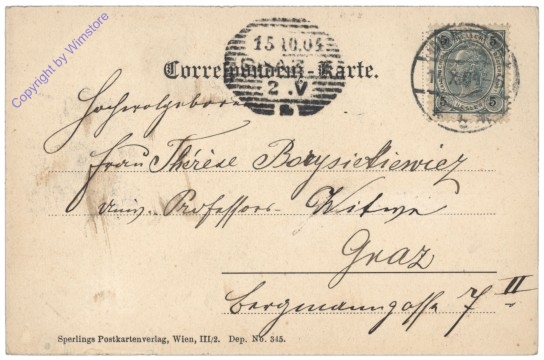 Copyright by Wimstore
15.10.04
2.V
5 5
Correspondenz-Karte.
Hochwolgeboren
Frau Thérèse Borysiekiewicz
Univ. Professors-Witwe
Graz
Bergmanngasse 7 II
Sperlings Postkartenverlag, Wien, III/2. Dep. No. 345.